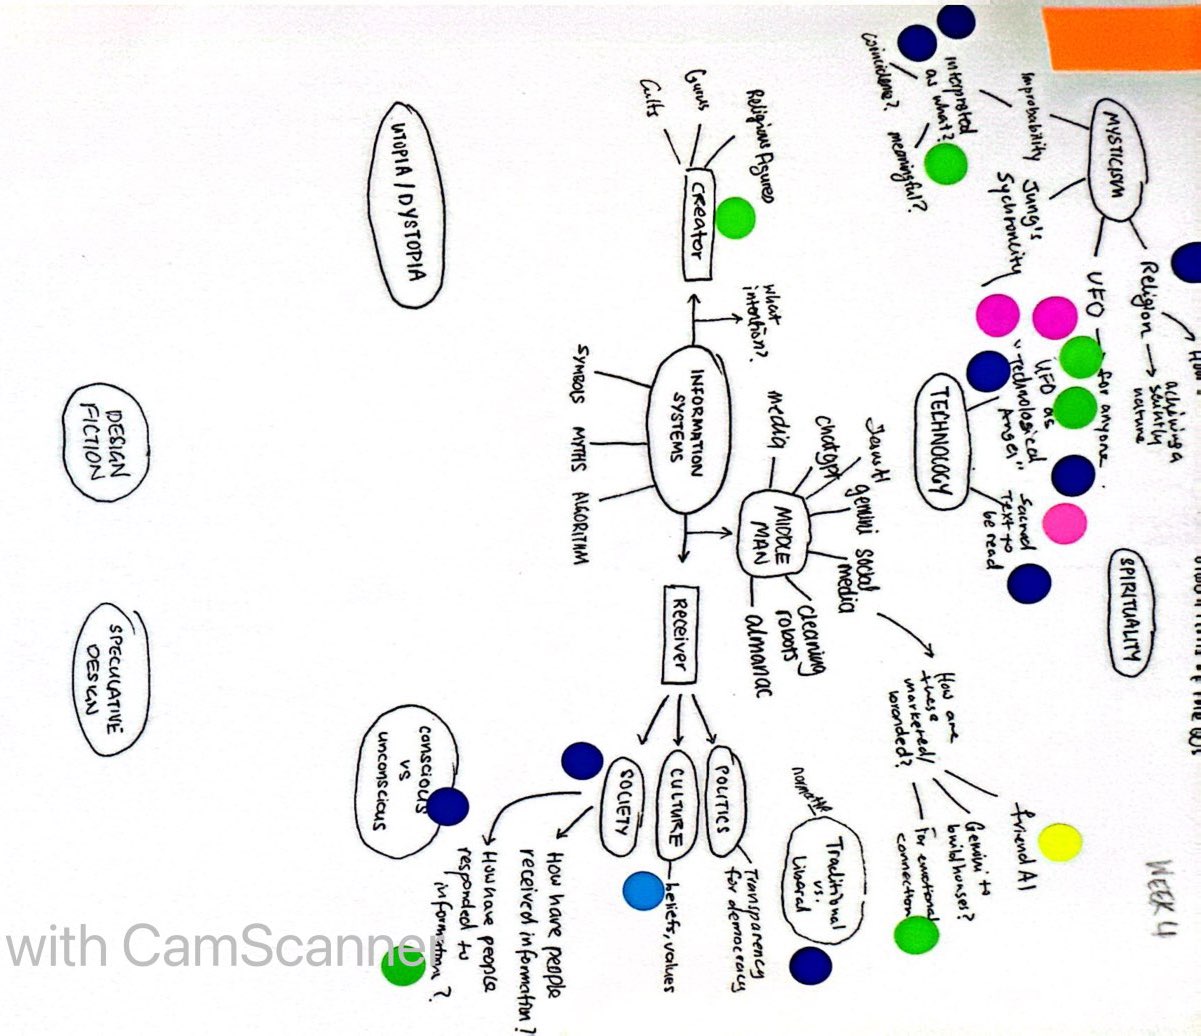 WEEK 4
MYSTICISM
Improbability
Interprated
as what?
coincidence?
meaningful?
Jung's
Sychronicity
UFO
for anyone.
UFO as
"Technological
Angel"
Religion
achieving a
saintly
nature
How
TECHNOLOGY
Sacred
Text to
be read
SPIRITUALITY
Religious Figures
Gurus
Cults
Creator
what
intention?
INFORMATION
SYSTEMS
SYMBOLS
MYTHS
ALGORITHM
MIDDLE
MAN
media
chatgpt
Jesus AI
gemini
social
media
cleaning
robots
almanac
How are
these
marketed/
branded?
friend AI
Gemini to
build houses?
For emotional
connection
Receiver
POLITICS
Transparency
for democracy
CULTURE
beliefs, values
SOCIETY
How have people
received information?
How have people
responded to
information?
Traditional
vs.
Liberal
conscious
vs
unconscious
UTOPIA/DYSTOPIA
DESIGN
FICTION
SPECULATIVE
DESIGN
with CamScanner